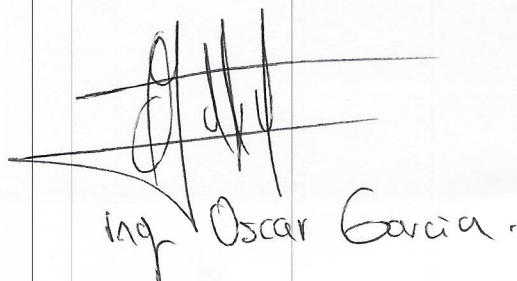 ing Oscar Garcia.